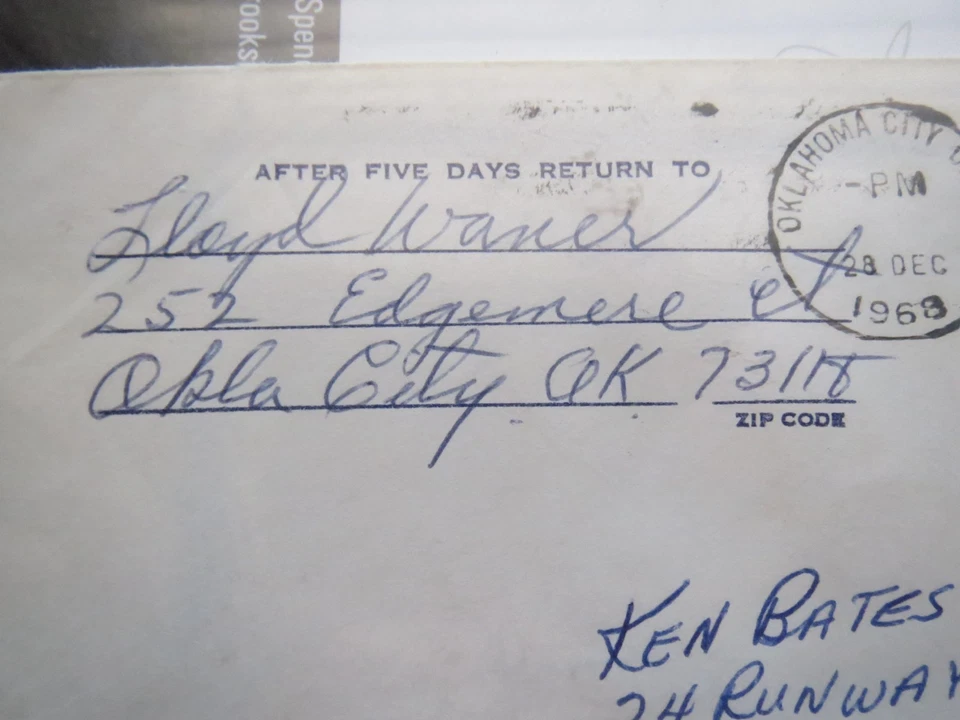 Spen
rooks
AFTER FIVE DAYS RETURN TO
Lloyd Waner
252 Edgemere Ct
Okla City OK 73118
ZIP CODE
OKLAHOMA CITY
-PM
28 DEC
1968
KEN BATES
24 RUNWAY